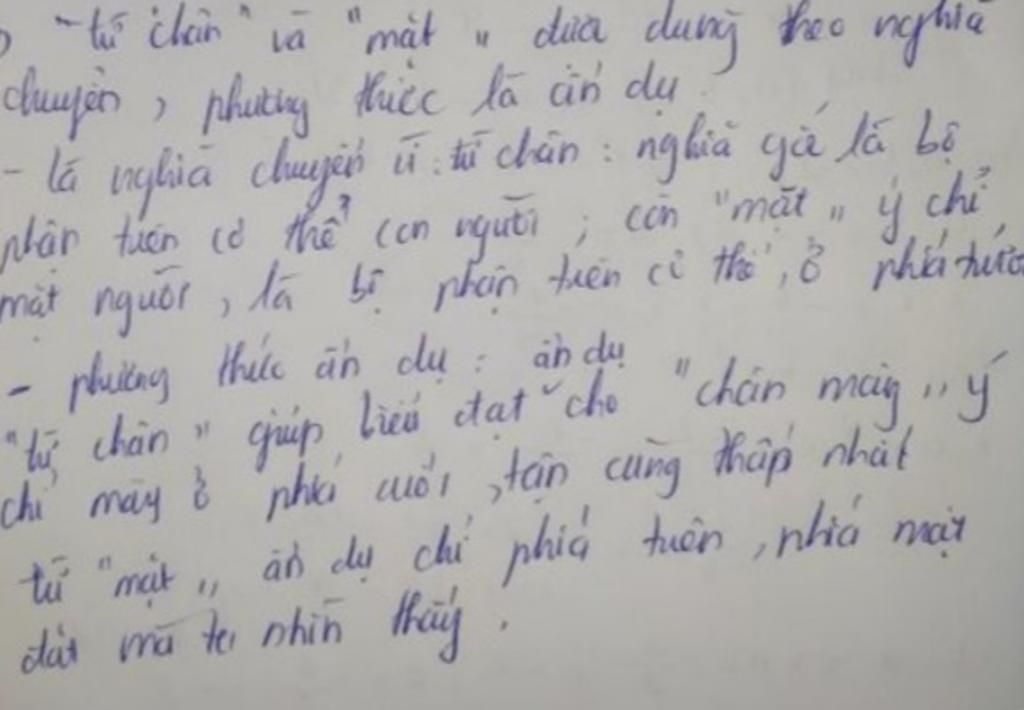 ) "từ chân" và "mặt" đưa dùng theo nghĩa
chuyển, phương thức là ẩn dụ.
- là nghĩa chuyển vì: từ chân: nghĩa gố là bộ
phận trên cơ thể con người; còn "mặt" ý chỉ
mặt người, là bộ phận trên cơ thể, ở phía trước
- phương thức ẩn dụ: ẩn dụ
"từ chân" giúp biểu đạt cho "chân mây" ý
chỉ mây ở phía cuối, tận cùng thấp nhất
từ "mặt" ẩn dụ chỉ phía trên, phía mặt
đất mà ta nhìn thấy.